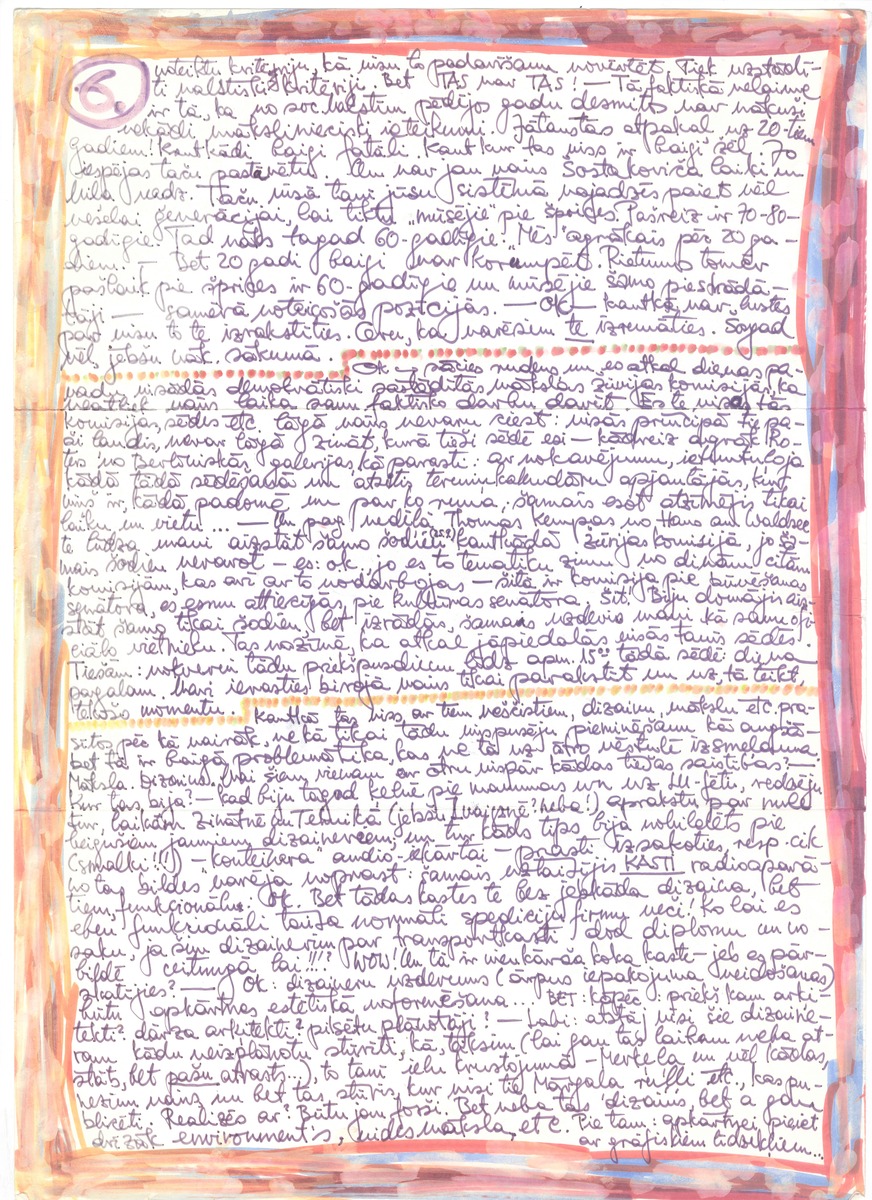 6.
noteiktu kritēriju kā visu to padarīšanu novērtēt. Tiek uzstādī-
ti valstiski kritēriji. Bet TAS nav TAS! — Tā faktiskā nelaime
ir tā, ka no soc. valstīm pēdējos gadu desmitos nav nākuši
nekādi mākslinieciski ieteikumi. Jātaustās atpakaļ uz 20-tiem
gadiem! Kautkādi baigi fatāli. Kautkur tas viss ir baigi žēl. 70
iespējas taču pastāvētu. Un nav jau vairs Šostakoviča laiki un
bail nadz. Taču visā tanī jūsu sistēmā vajadzēs paiet vēl
veselai ģenerācijai, lai tiktu "mūsējie" pie šprices. Pašreiz ir 70-80-
gadīgie. Tad nāks tagad 60-gadīgie. "Mēs" agrākais pēc 20 ga-
diem. — Bet 20 gadi baigi var korumpēt. Rietumos tomēr
pašlaik pie šprices ir 60-gadīgie un mūsējie šamo piestrādā-
tāji — samērā noteicošās pozīcijās. — OK — kautkā nav lustes
par visu to te izrakstīties. Ceru, ka varēsim te izrunāties. Šogad
vēl, jebšu nāk. sākumā.
Ok — sācies rudens un es atkal dienas pa-
vadu visādās demokrātiski sastādītās mākslas žūrijas komisijās, ka
neatliek vairs laika savu faktisko darbu darīt. Es te visas tās
komisijas, sēdes etc. lāgā vairs nevaru ciest: visās principā tie pa-
ši ļaudis, nevar lāgā zināt, kurā tieši sēdē esi — kādreiz agrāk Ro-
ters no Berlīniskās galerijas kā parasti: ar nokavējumu,
kādā tādā sēdē un atšķīris terminkalendāru apjautājās, kur
viņš ir, kādā padomē un par ko runa, šamais esot atzīmējis tikai
laiku un vietu... — Un pag. nedēļā Thomas Kempas no Haus am Waldsee
te lūdza mani aizstāt šamo šodien kautkādā žūrijas komisijā, jo ša-
mais šodien nevarot — es: o.k. jo es to tematiku zinu no divām citām
komisijām, kas arī ar to nodarbojas — šitā ir komisija pie būvēšanas
senatora, es esmu attiecīgās pie kultūras senatora. Šit! Biju domājis aiz-
stāt šamo tikai šodien, bet izrādās, šamais uzdevis mani kā savu ofi-
ciālo vietnieku. Tas nozīmē, ka atkal jāpiedalās visās tanīs sēdēs.
Tiešām: notveroi tādu priekšpusdienu līdz apm. 15°° tādā sēdē: diena
pagalam. Vari ierasties birojā vairs tikai parakstīt un uz, tā teikt,
tekošo momentu.
Kautkā tas viss, ar tiem neizcistiem, dizainu, mākslu etc. pra-
sītos pēc kā vairāk nekā tikai tādu vispusēju pieminēšanu kā augšā-
bet tā ir baigā problemātika, kas nē tā uz ātro vēstulē izsmeļama
Māksla. Dizains. Vai šiem vienam ar otru vispār kādas tiešas saistības? —
Kur tas bija? — kad biju tagad Ķelnē pie mammas un uz LU-fēti, redzēju
tur, laikam Zinātnē un Tehnikā (jebšu Zvaigznē? neba!) aprakstu par nule
beigušiem jauniem dizaineriem un tur kāds tips bija nobildēts pie
(smalki!!!) — "konteinera" audio-iekārtai — prasti izsakoties, resp. cik
no tās bildes varēja noprast: šamais uztaisījis KASTI radioaparā-
tiem, funkcionālu. OK. Bet tādas kastes te bez jebkāda dizaina, bet
eben funkcionāli taisa normāli spedīciju firmu veči! Ko lai es
saku, ja šim dizainerim par transportkasti dod diplomu un no-
bildē ceitungā lai!!!? WOW! Un tā ir vienkārša koka kaste — jeb es pār-
skatījies? — Ok: dizaineru uzdevums (ārpus iepakojuma veidošanas)
būtu apkārtnes estētiskā noformēšana... BET: kāpēc? priekš kam arhi-
tekti? dārza arhitekti? pilsētu plānotāji? — Labi: atstāj visi šie dizainie-
ram kādu neizplānotu stūrīti, kā, teiksim (lai gan tas laikam neba at-
stāts, bet pašu atrasts..), to tanī ielu krustojumā — Merķeļa un vēl kādas,
kur visi tie Mārgala ruļļi etc., kas pu-
nezinu vairs un bet tas stūris,
blicēti. Realizēs ar? Būtu jau forši. Bet neba tas dizains bet a gan
drīzāk environment's, vides māksla, etc. Pie tam: apkārtnei pieiet
ar grafiskiem līdzekļiem...